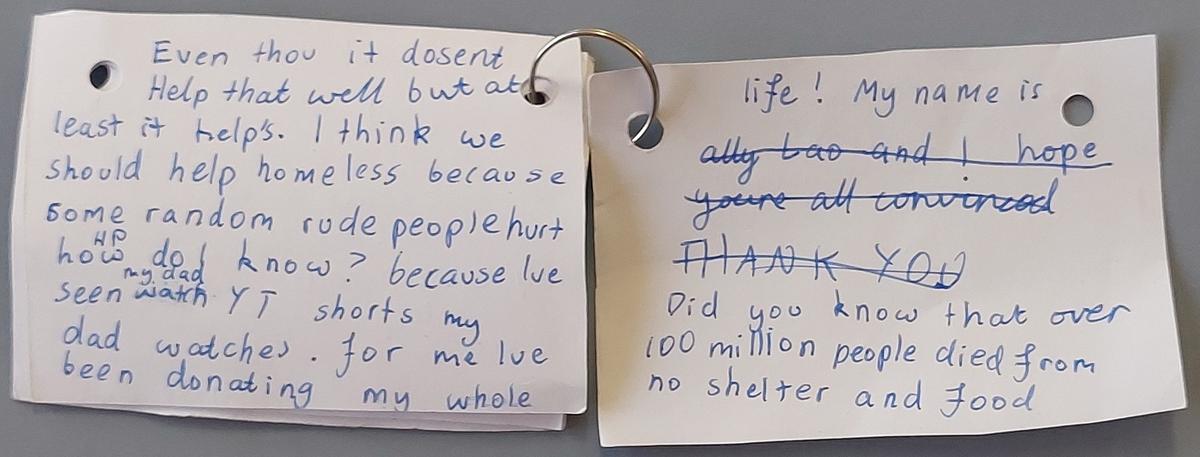 Even thou it dosent
Help that well but at
least it help's. I think we
should help homeless because
some random rude people hurt
HP
how do I know? because Ive
my dad
seen watch YT shorts my
dad watches. for me Ive
been donating my whole
life! My name is
ally bao and I hope
youre all convinced
THANK YOU
Did you know that over
100 million people died from
no shelter and food